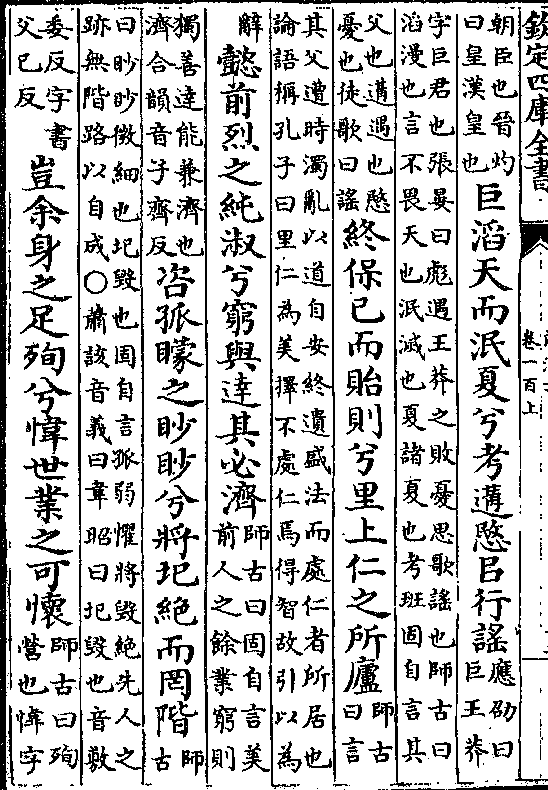 欽定四庫全書
卷一百上
朝臣也晉灼
曰皇漢皇也
巨滔天而泯夏兮考遘愍㠯行謠
應劭曰
巨王莽
字巨君也張晏曰彪遇王莽之敗憂思歌謠也師古曰
滔漫也言不畏天也泯滅也夏諸夏也考班固自言其
父也遘遇也愍
憂也徒歌曰謠
終保已而貽則兮里上仁之所廬
師古
曰言
其父遭時濁亂以道自安終遺盛法而處仁者所居也
論語稱孔子曰里仁為美擇不處仁焉得智故引以為
辭
懿前烈之純淑兮窮與達其必濟
師古曰固自言美
前人之餘業窮則
獨善達能兼濟也
濟合韻音子齊反
咨孤矇之眇眇兮將圯絶而罔階
師
古
曰眇眇微細也圯毀也固自言孤弱懼將毀絶先人之
跡無階路以自成○蕭該音義曰韋昭曰圯毀也音敷
委反字書
父已反
豈余身之足殉兮愇世業之可懷
師古曰殉
營也愇字